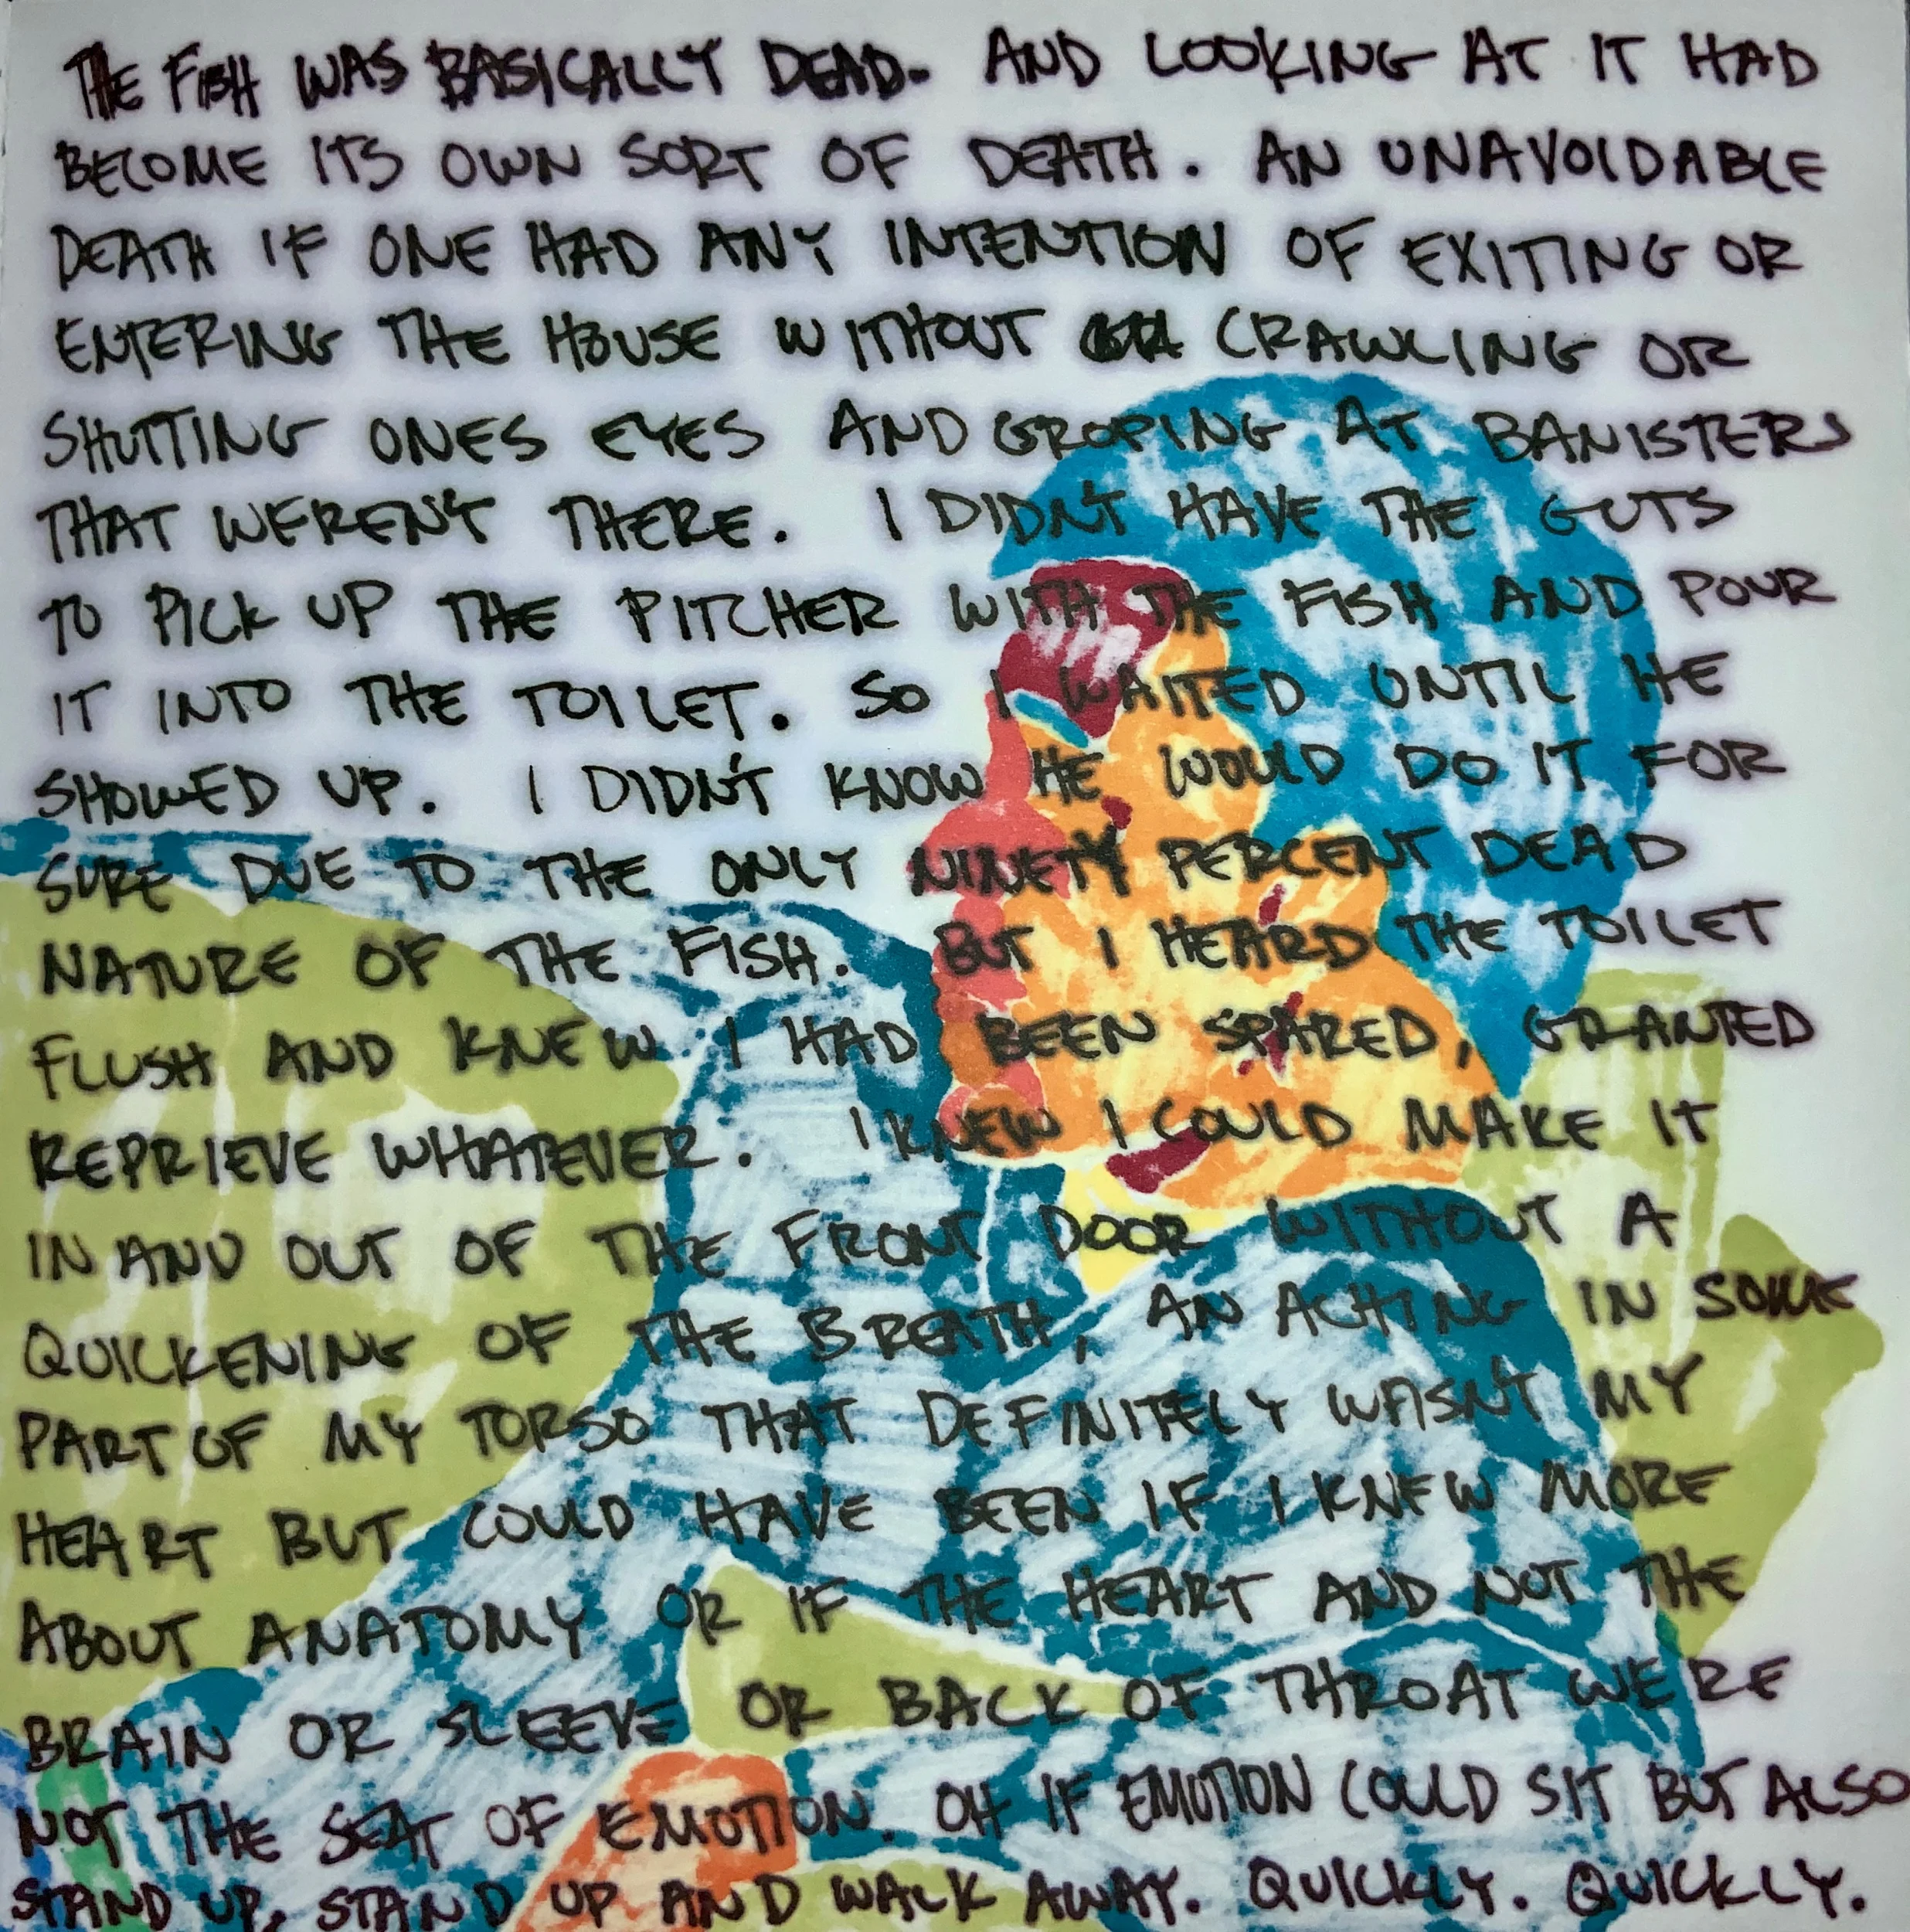 THE FISH WAS BASICALLY DEAD. AND LOOKING AT IT HAD
BECOME ITS OWN SORT OF DEATH. AN UNAVOIDABLE
DEATH IF ONE HAD ANY INTENTION OF EXITING OR
ENTERING THE HOUSE WITHOUT CRAWLING OR
SHUTTING ONES EYES AND GROPING AT BANISTERS
THAT WEREN'T THERE. I DIDN'T HAVE THE GUTS
TO PICK UP THE PITCHER WITH THE FISH AND POUR
IT INTO THE TOILET. SO I WAITED UNTIL HE
SHOWED UP. I DIDN'T KNOW HE WOULD DO IT FOR
SURE DUE TO THE ONLY NINETY PERCENT DEAD
NATURE OF THE FISH. BUT I HEARD THE TOILET
FLUSH AND KNEW I HAD BEEN SPARED, GRANTED
REPRIEVE WHATEVER. I KNEW I COULD MAKE IT
IN AND OUT OF THE FRONT DOOR WITHOUT A
QUICKENING OF THE BREATH, AN ACHING IN SOME
PART OF MY TORSO THAT DEFINITELY WASN'T MY
HEART BUT COULD HAVE BEEN IF I KNEW MORE
ABOUT ANATOMY OR IF THE HEART AND NOT THE
BRAIN OR SLEEVE OR BACK OF THROAT WERE
NOT THE SEAT OF EMOTION. OH IF EMOTION COULD SIT BUT ALSO
STAND UP, STAND UP AND WALK AWAY. QUICKLY. QUICKLY.